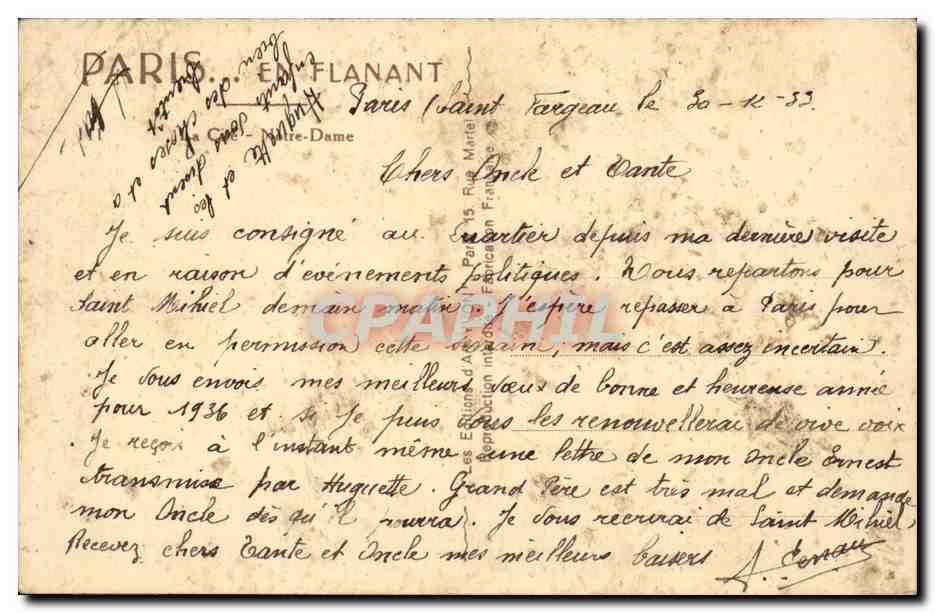 PARIS... EN FLANANT
La Cité - Notre-Dame
Paris / Saint Fargeau le 30-12-33
Chers Oncle et Tante
Je suis consigné au Quartier depuis ma dernière visite
et en raison d'événements politiques. Nous repartons pour
Saint Mihiel demain matin. J'espère repasser à Paris pour
aller en permission cette semaine, mais c'est assez incertain.
Je vous envois mes meilleurs vœux de bonne et heureuse année
pour 1936 et si je puis vous les renouvellerai de vive voix
. Je reçois à l'instant même une lettre de mon Oncle Ernest
transmise par Huguette. Grand Père est très mal et demande
mon Oncle dès qu'il pourra. Je vous recrirai de Saint Mihiel
Recevez chers Tante et Oncle mes meilleurs baisers
Huguette et les
enfants vous disent
bien des choses et a
bientôt
Les Editions d'Art Paris 15, Rue Martel
Reproduction Interdite Fabrication Française
CPAPHIL